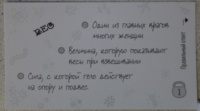 ВЕЗ
Один из главных врагов
многих женщин
Величина, которую показывают
весы при взвешивании
Сила, с которой тело действует
на опору и подвес
Правильный ответ
1